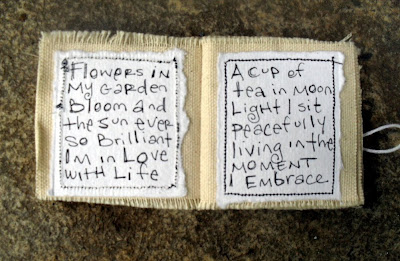 Flowers in
My Garden
Bloom and
the Sun ever
so Brilliant
Im in Love
with Life
A cup of
tea in Moon
Light I sit
Peacefully
living in the
MOMENT
I Embrace